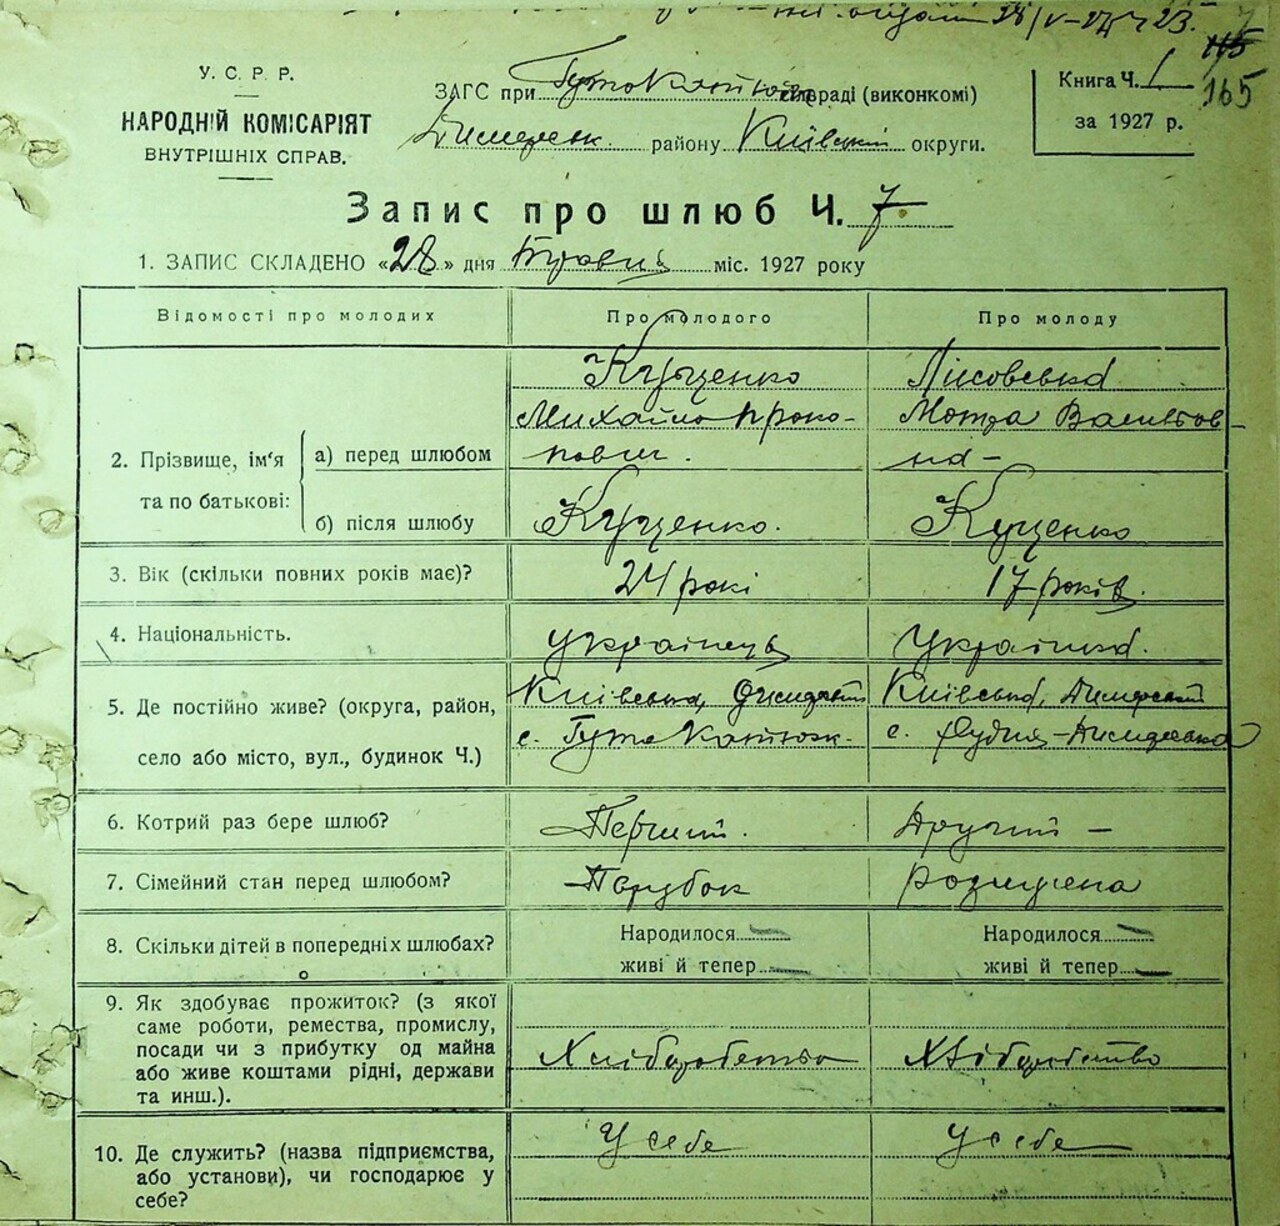 28/V-27 р 23.
7
115
165
У. С. Р. Р.
НАРОДНІЙ КОМІСАРІЯТ
ВНУТРІШНІХ СПРАВ.
ЗАГС при Гутокатюж сільраді (виконкомі)
Димерськ. району Київської округи.
Книга Ч. 1
за 1927 р.
Запис про шлюб Ч. 7
1. ЗАПИС СКЛАДЕНО «28» дня Травня міс. 1927 року
Відомості про молодих Про молодого Про молоду
2. Прізвище, ім'я та по батькові:
а) перед шлюбом
Кущенко
Михайло Проко-
пович.
Лісовська
Мотра Васильов-
на-
б) після шлюбу
Кущенко.
Кущенко
3. Вік (скільки повних років має)? 24 рокі 17 років.
4. Національність. Українець Українка.
5. Де постійно живе? (округа, район,
село або місто, вул., будинок Ч.)
Київська, Димерськ
с. Гута Катюж.
Київська, Димерський
с. Рудня-Димерська
6. Котрий раз бере шлюб? Перший. Другий —
7. Сімейний стан перед шлюбом? Парубок розлучена
8. Скільки дітей в попередніх шлюбах?
Народилося —
живі й тепер —
Народилося —
живі й тепер —
9. Як здобуває прожиток? (з якої
саме роботи, ремества, промислу,
посади чи з прибутку од майна
або живе коштами рідні, держави
та инш.).
Хліборобство
Хліборобство
10. Де служить? (назва підприємства,
або установи), чи господарює у
себе?
У себе
У себе